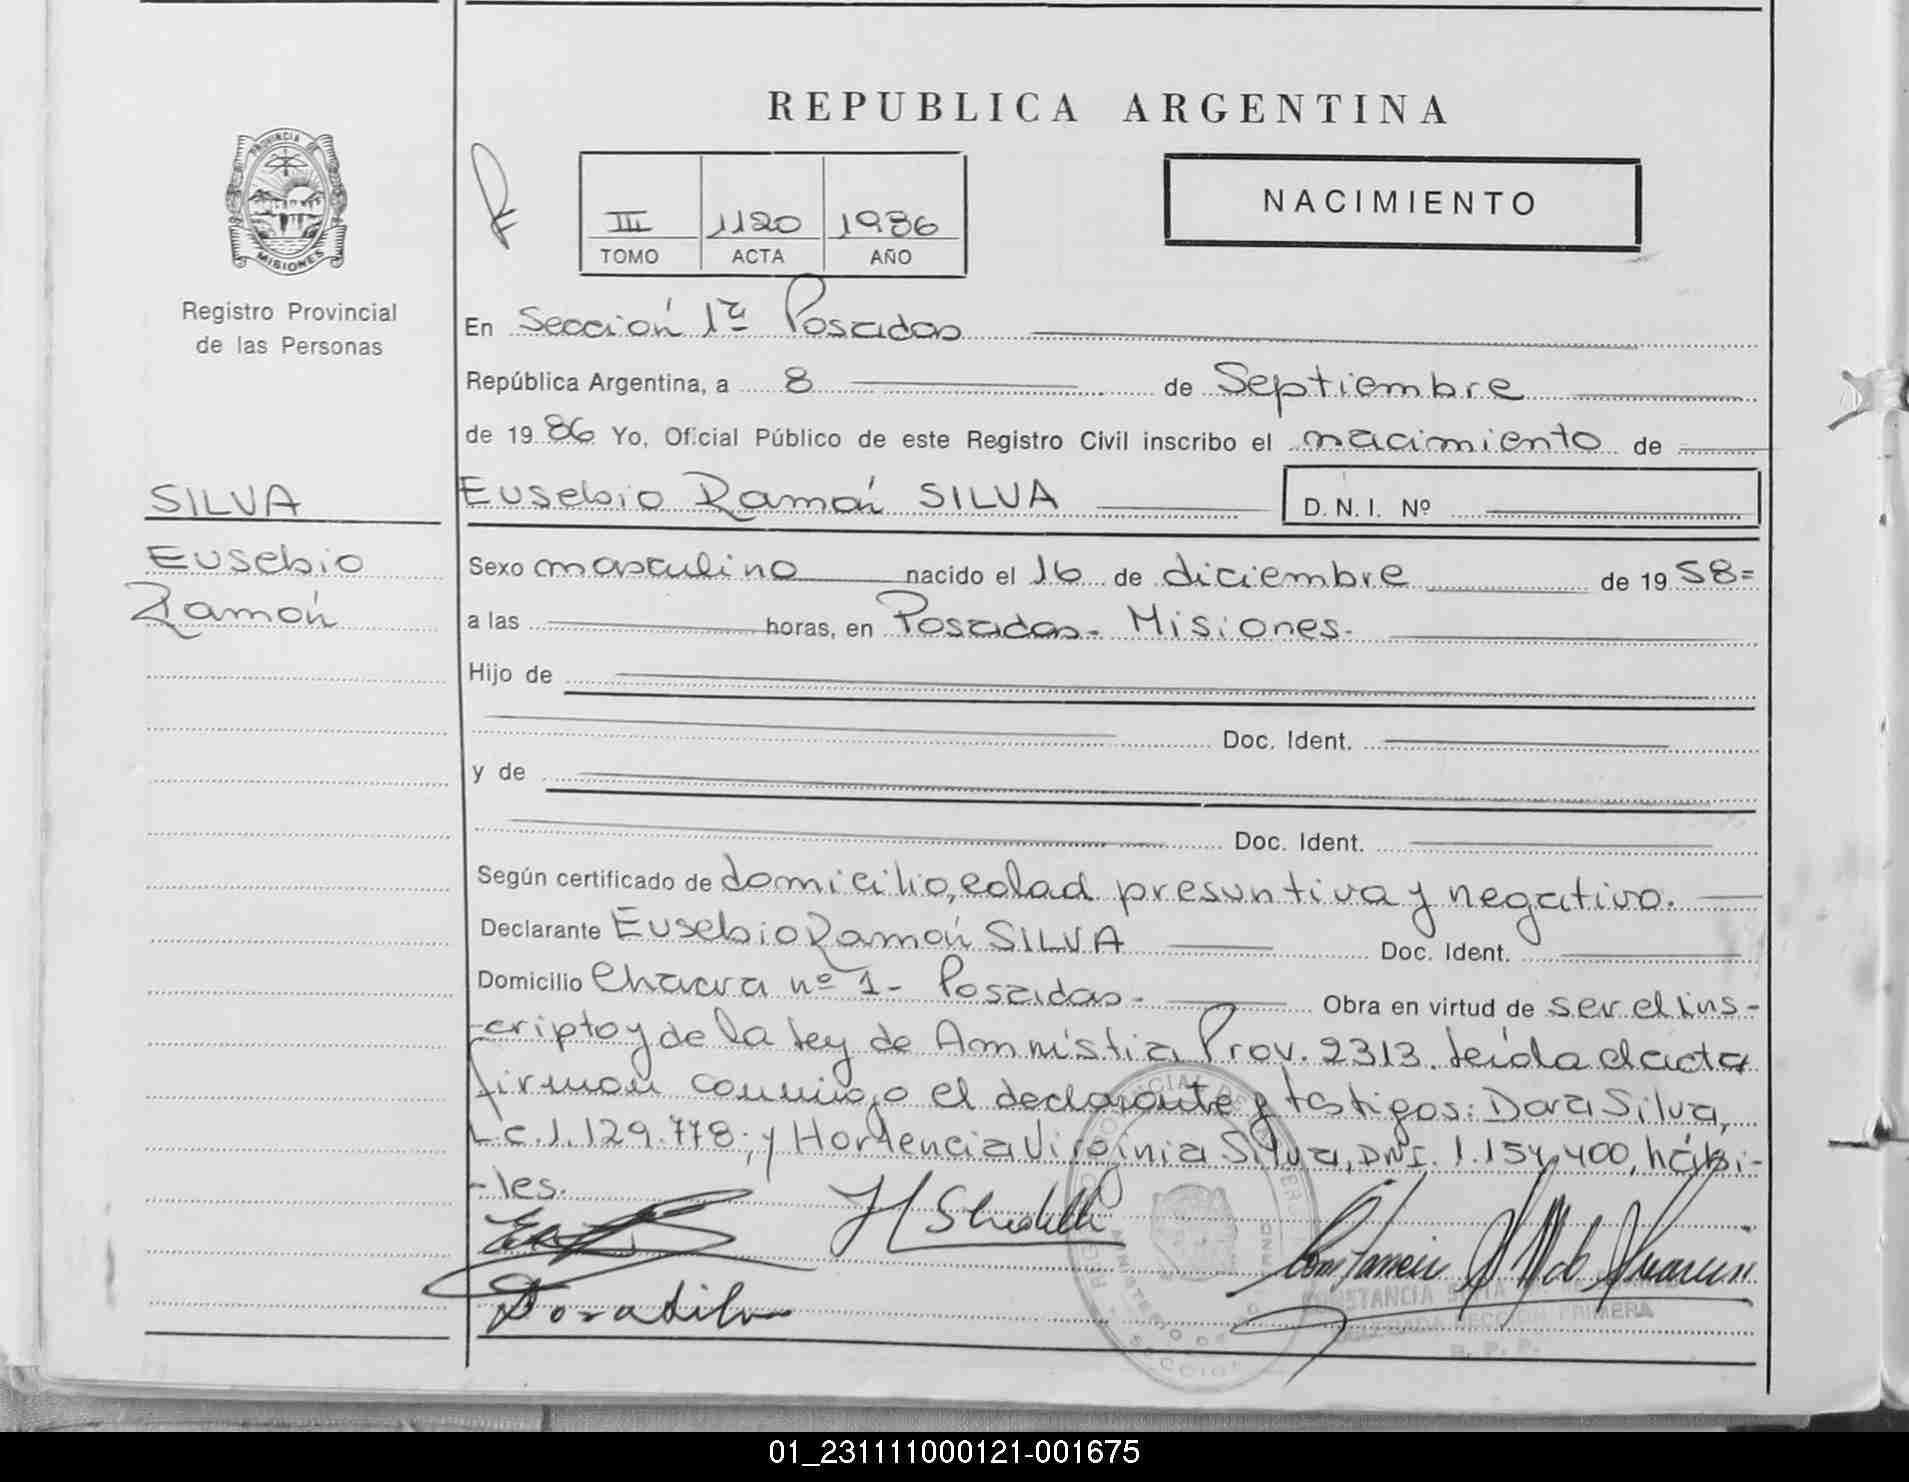 REPUBLICA ARGENTINA
PROVINCIA DE
MISIONES
Registro Provincial
de las Personas
III 1120 1986
TOMO ACTA AÑO
NACIMIENTO
En Sección 1ª Posadas
República Argentina, a 8 de Septiembre
de 1986 Yo, Oficial Público de este Registro Civil inscribo el nacimiento de
SILVA
Eusebio Ramón SILVA D.N.I. Nº
Eusebio
Ramón
Sexo masculino nacido el 16 de diciembre de 1958=
a las horas, en Posadas- Misiones-
Hijo de
Doc. Ident.
y de
Doc. Ident.
Según certificado de domicilio, edad presuntiva y negativo.
Declarante Eusebio Ramón SILVA Doc. Ident.
Domicilio Chacra nº 1- Posadas- Obra en virtud de ser el ins-
-cripto y de la ley de Amnistia Prov. 2313. leída el acta
firman conmigo el declarante y testigos: Dora Silva,
L.C. 1.129.778; y Hortencia Virginia Silva, DNI. 1.154.400, hábi-
-les.
Dora Silva
SECCION PRIMERA
R. P. P.
01_231111000121-001675